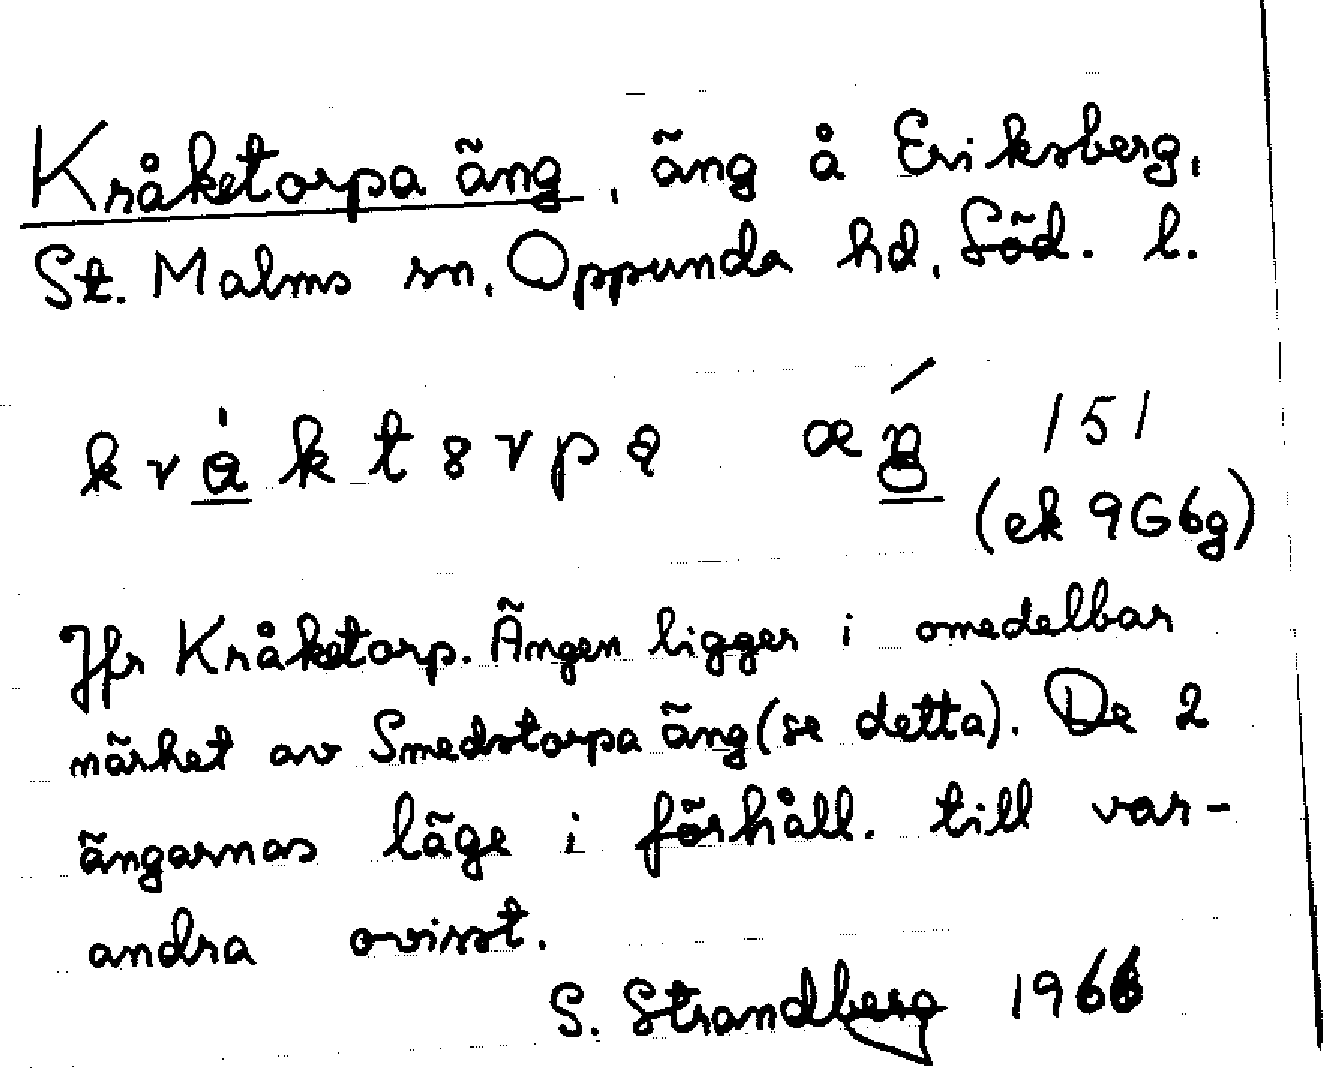 Kråketorpa äng, äng å Eriksberg,
St. Malms sn, Oppunda hd, Söd. l.
kråktorpa æŋ 151
(ek 9G6g)
Jfr Kråketorp. Ängen ligger i omedelbar
närhet av Smedstorpa äng (se detta). De 2
ängarnas läge i förhåll. till var-
andra ovisst.
S. Strandberg 1966